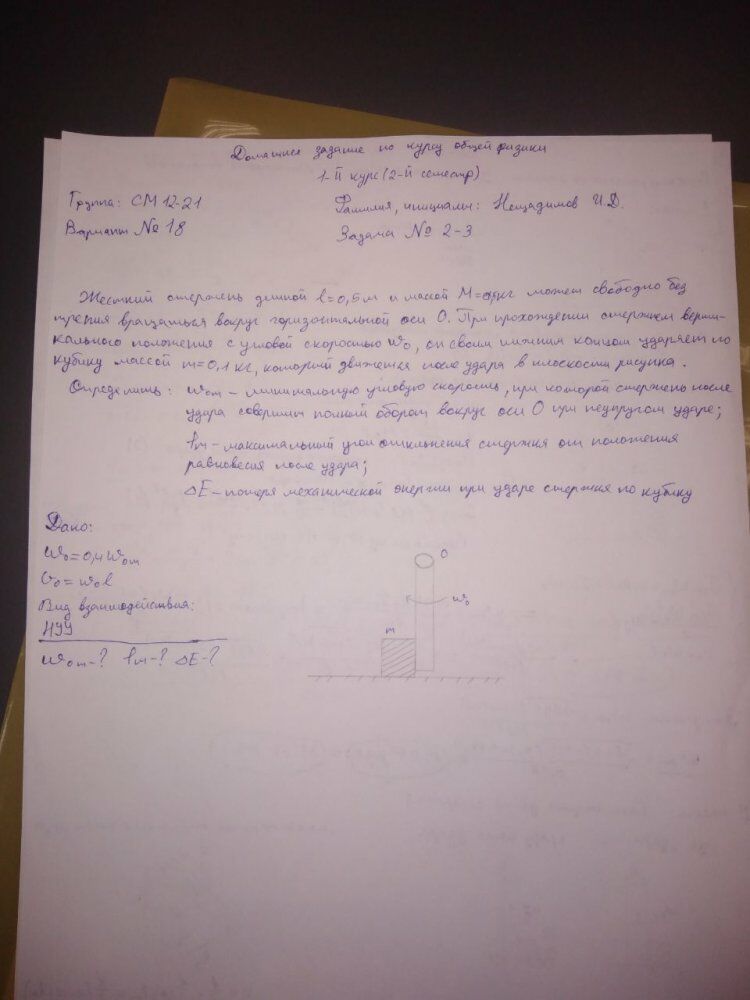 Домашнее задание по курсу общей физики
1-й курс (2-й семестр)
Группа: СМ 12-21
Фамилия, инициалы: Нещадимов И.Д.
Вариант № 18
Задача № 2-3
Жесткий стержень длиной l=0,5 м и массой M= может свободно без
трения вращаться вокруг горизонтальной оси О. При прохождении стержнем верти-
кального положения с угловой скоростью ω₀, он своим нижним концом ударяет по
кубику массой m=0,1 кг, который движется после удара в плоскости рисунка.
Определить: ω₀m – минимальную угловую скорость, при которой стержень после
удара совершит полный оборот вокруг оси О при неупругом ударе;
– максимальный угол отклонения стержня от положения
равновесия после удара;
ΔE – потеря механической энергии при ударе стержня по кубику
Дано:
ω₀=0,4ω₀m
υ₀=ω₀l
Вид взаимодействия:
НУУ
ω₀m-? ΔE-?
О
ω₀
m